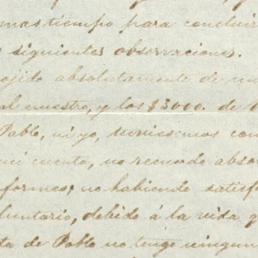 mas tiempo para concluir
siguientes observaciones.
ojido absolutamente de mi
al nuestro, y los $3000. de
Pablo, ni yo, tuviesemos con
mi cuenta, no recuerdo abso
formes; no habiendo satisf
luntario, debido á la vida q
ta de Pablo no tengo ningun